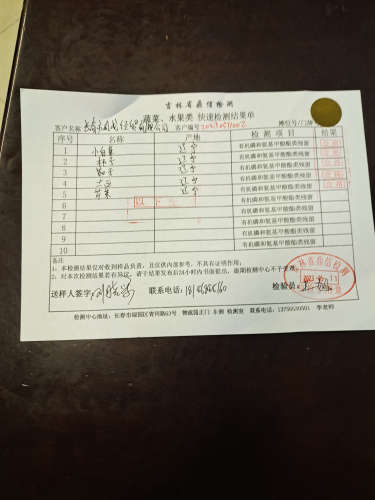 吉林省鼎信检测
蔬菜、水果类 快速检测结果单
客户名称 客户编号 摊位号/门牌
序号 名称 产地 检测项目 结果
1 辽宁 有机磷和氨基甲酸酯类残留 合格
2 辽宁 有机磷和氨基甲酸酯类残留 合格
3 茄子 辽宁 有机磷和氨基甲酸酯类残留 合格
4 辽宁 有机磷和氨基甲酸酯类残留 合格
5 辽宁 有机磷和氨基甲酸酯类残留 合格
6 以下 有机磷和氨基甲酸酯类残留
7 有机磷和氨基甲酸酯类残留
8 有机磷和氨基甲酸酯类残留
9 有机磷和氨基甲酸酯类残留
10 有机磷和氨基甲酸酯类残留
备注
1、本检测结果仅对收到样品负责，且仅供内部参考，不具有证明作用；
2、对本次检测结果若有异议，请于结果发布后24小时内书面提出，逾期检测中心不予受理。
送样人签字 联系电话: 检验员:
吉林省鼎信检测
检测中心地址：长春市绿园区青冈路63号 物流园正门 东侧 检测室 联系电话： 李老师